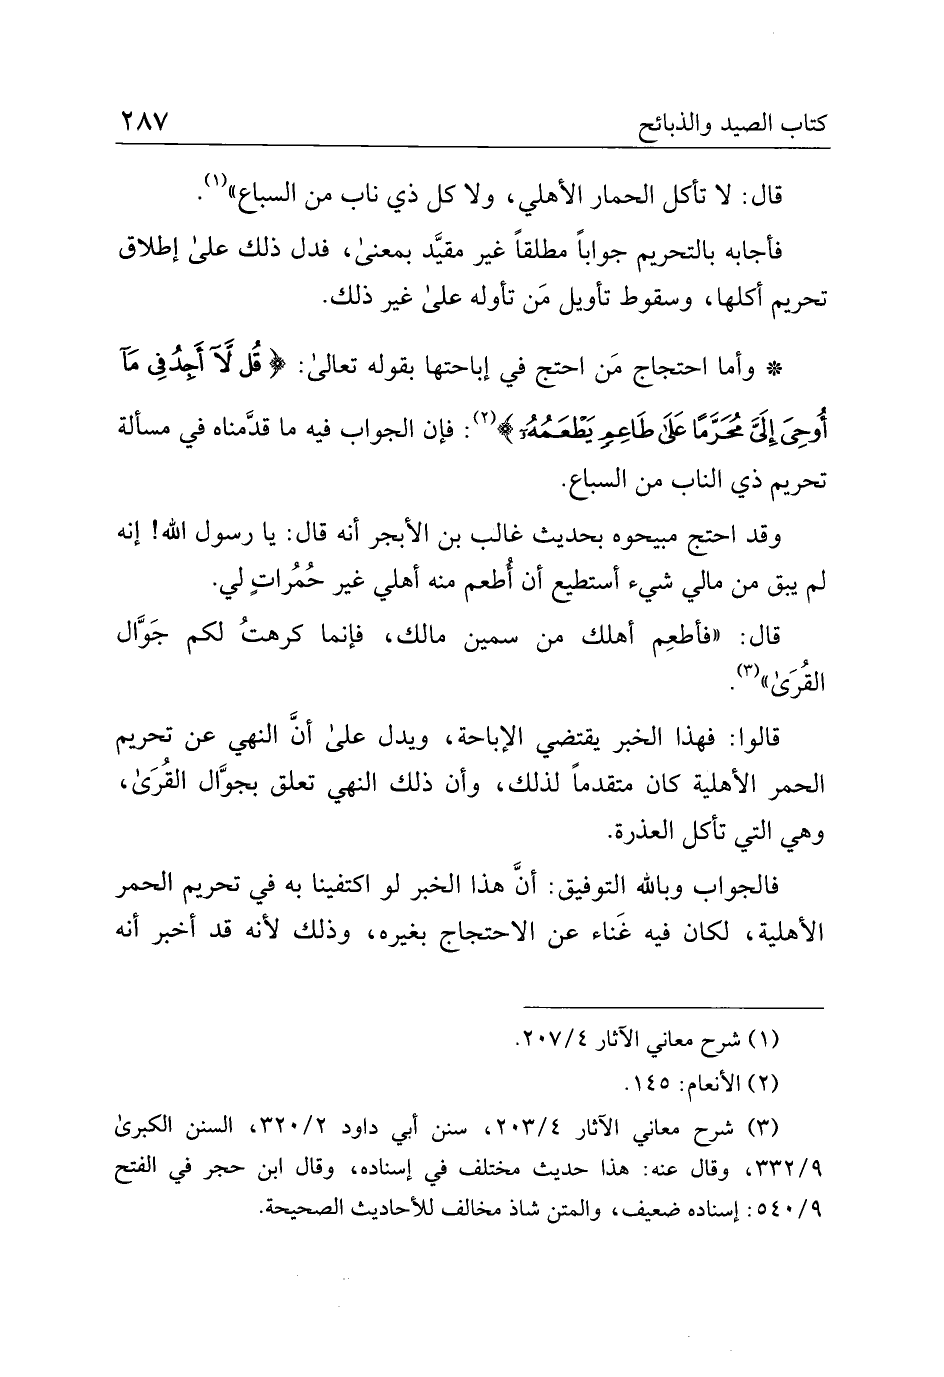 كتاب الصيد والذبائح ٢٨٧
قال: لا تأكل الحمار الأهلي، ولا كل ذي ناب من السباع»(١).
فأجابه بالتحريم جواباً مطلقاً غير مقيَّد بمعنىٰ، فدل ذلك علىٰ إطلاق
تحريم أكلها، وسقوط تأويل مَن تأوله علىٰ غير ذلك.
* وأما احتجاج مَن احتج في إباحتها بقوله تعالىٰ: ﴿قُل لَّآ أَجِدُ فِى مَآ
أُوحِىَ إِلَىَّ مُحَرَّمًا عَلَىٰ طَاعِمٍ يَطْعَمُهُۥٓ﴾(٢): فإن الجواب فيه ما قدَّمناه في مسألة
تحريم ذي الناب من السباع.
وقد احتج مبيحوه بحديث غالب بن الأبجر أنه قال: يا رسول الله! إنه
لم يبق من مالي شيء أستطيع أن أُطعم منه أهلي غير حُمُراتٍ لي.
قال: «فأطعِم أهلك من سمين مالك، فإنما كرهتُ لكم جَوَّال
القُرَىٰ»(٣).
قالوا: فهذا الخبر يقتضي الإباحة، ويدل علىٰ أنَّ النهي عن تحريم
الحمر الأهلية كان متقدماً لذلك، وأن ذلك النهي تعلق بجوَّال القُرَىٰ،
وهي التي تأكل العذرة.
فالجواب وبالله التوفيق: أنَّ هذا الخبر لو اكتفينا به في تحريم الحمر
الأهلية، لكان فيه غَناء عن الاحتجاج بغيره، وذلك لأنه قد أخبر أنه
(١) شرح معاني الآثار ٢٠٧/٤.
(٢) الأنعام: ١٤٥.
(٣) شرح معاني الآثار ٢٠٣/٤، سنن أبي داود ٣٢٠/٢، السنن الكبرىٰ
٣٣٢/٩، وقال عنه: هذا حديث مختلف في إسناده، وقال ابن حجر في الفتح
٥٤٠/٩: إسناده ضعيف، والمتن شاذ مخالف للأحاديث الصحيحة.